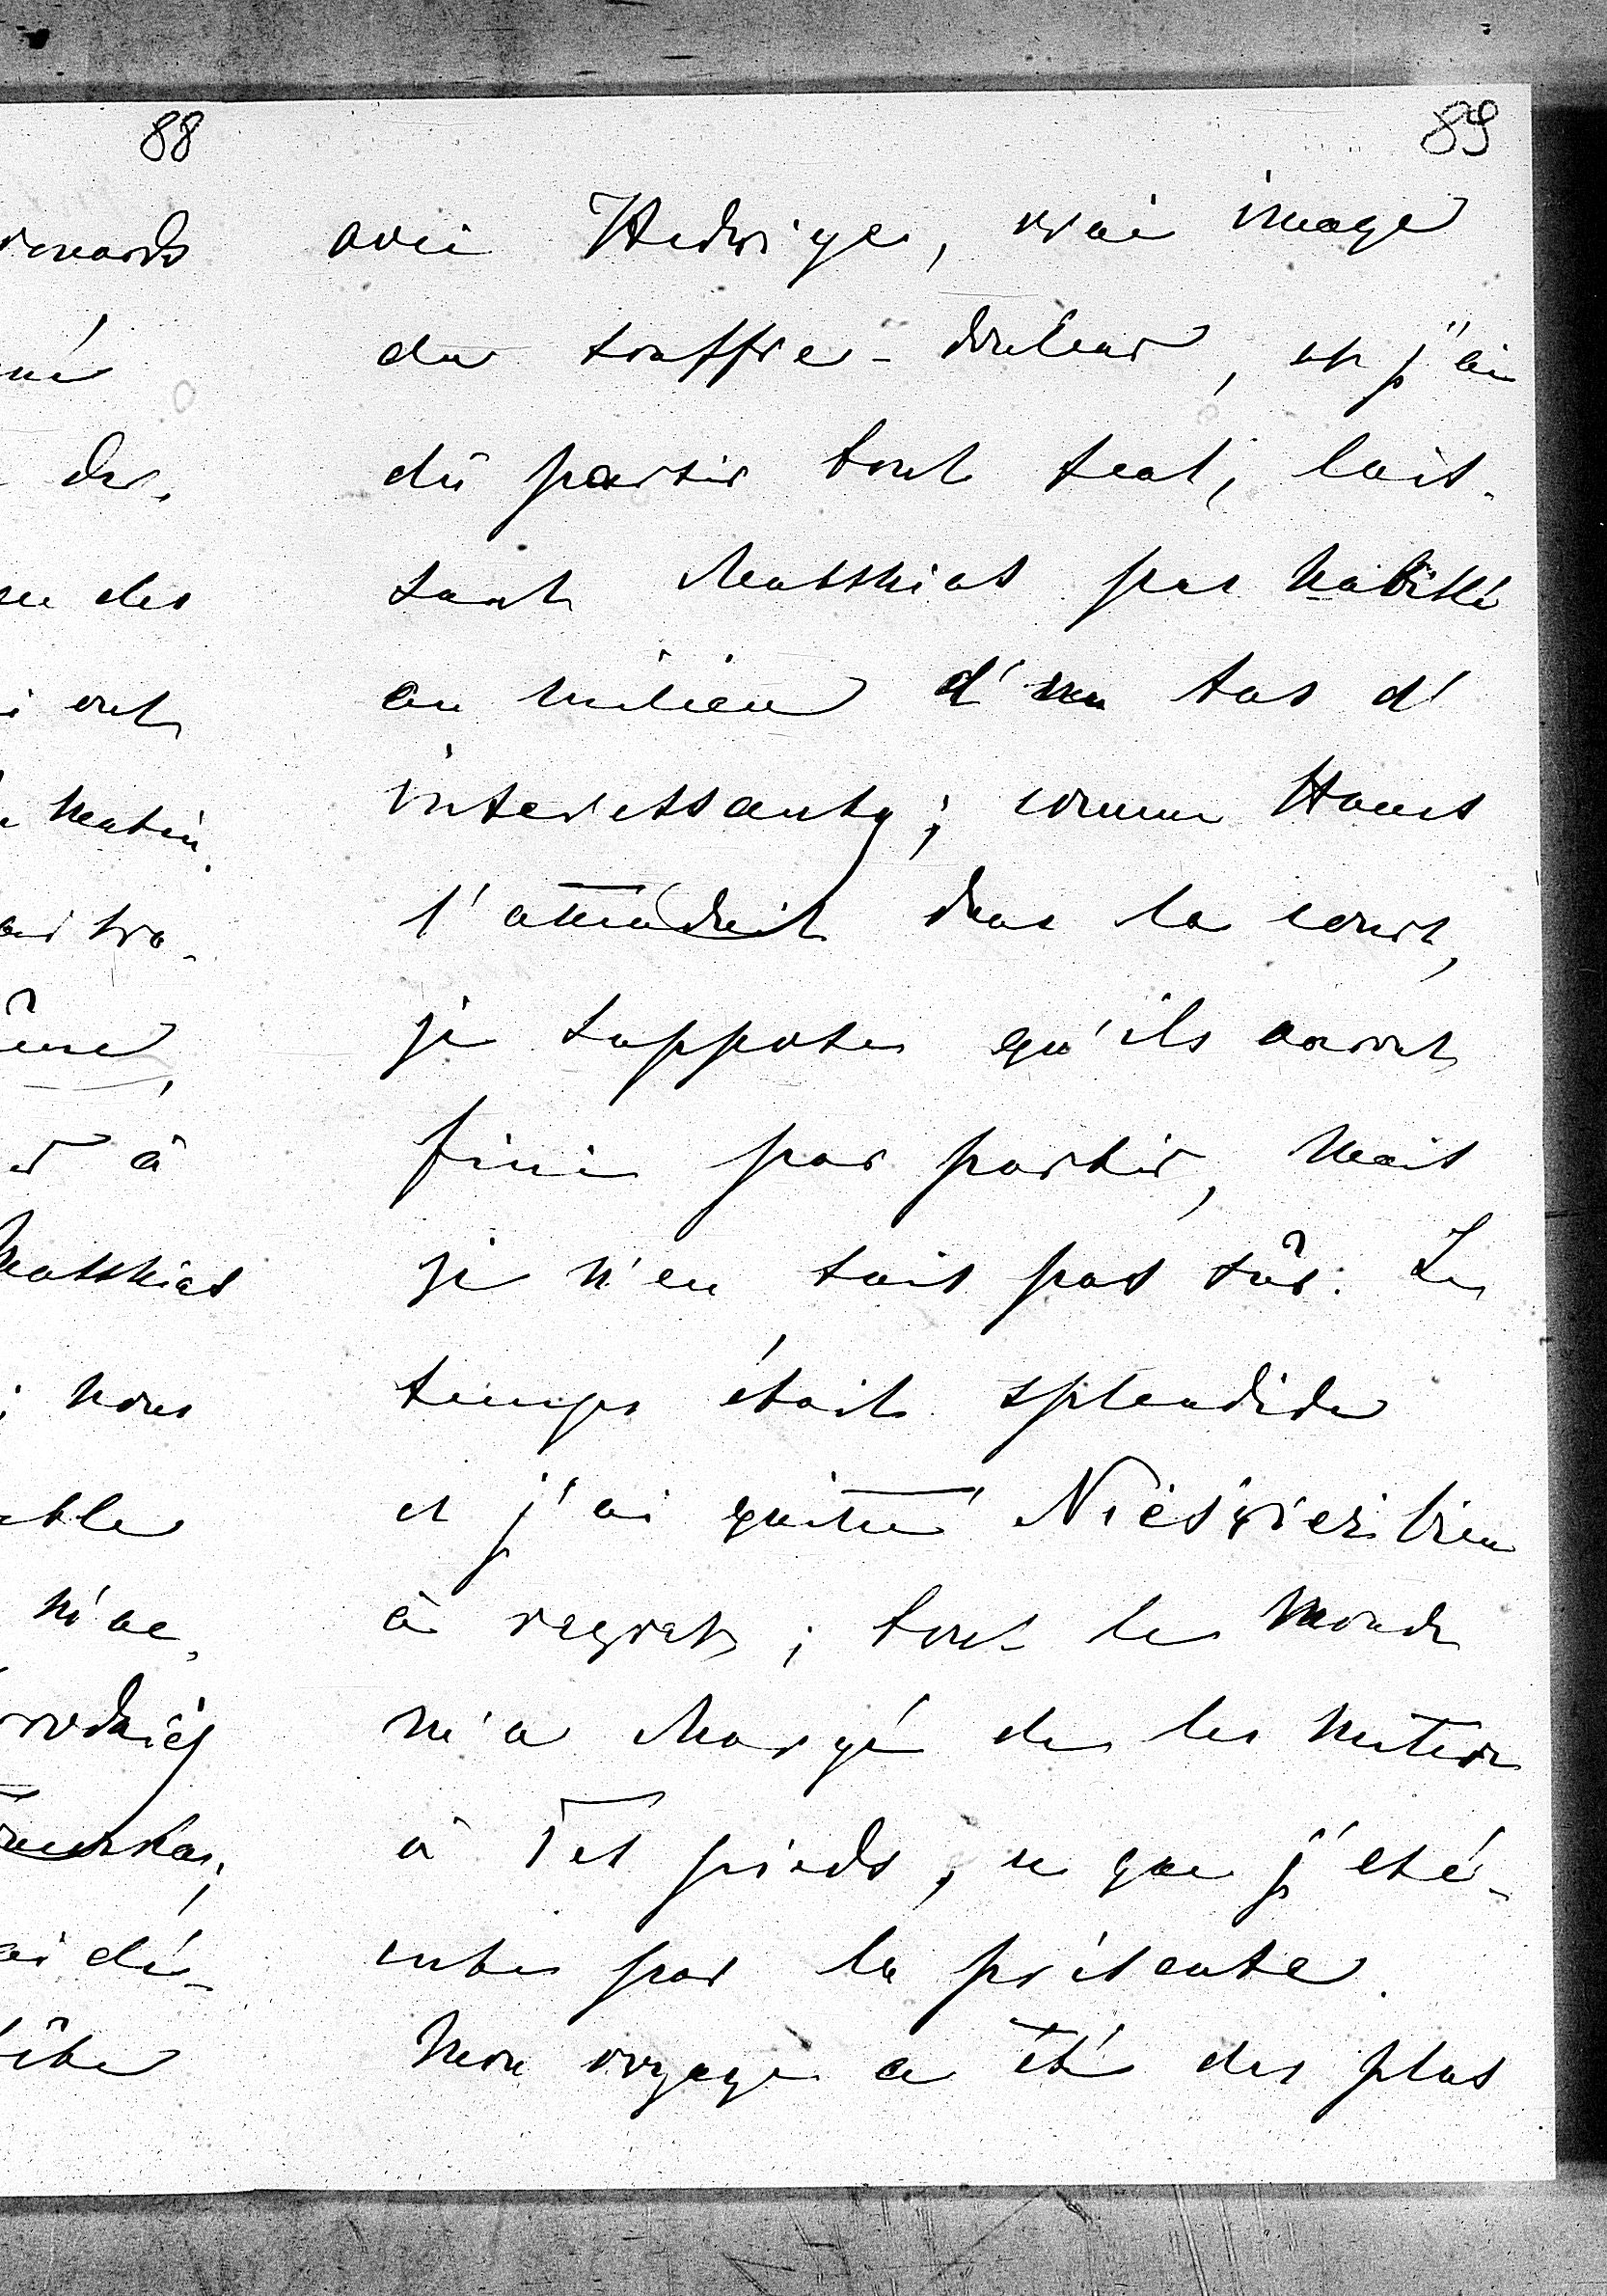 88
89
avec Hedwige, vraie image
du souffre-douleur, et j'ai
dû partir tout seul, lais-
sant Matthias pas habillé
au milieu d'un tas d'
interessants; comme Hans
l'attendait dans la cour,
je suppose qu'ils auront
fini par partir, mais
je n'en suis pas sûr. Le
temps était splendide
et j'ai quitté Nieśwież bien
à regret; tout le monde
m'a chargé de les mettre
à Tes pieds, ce que j'exé-
cute par la présente.
Mon voyage a été des plus
des
ont
matin.
à
Matthias
nous